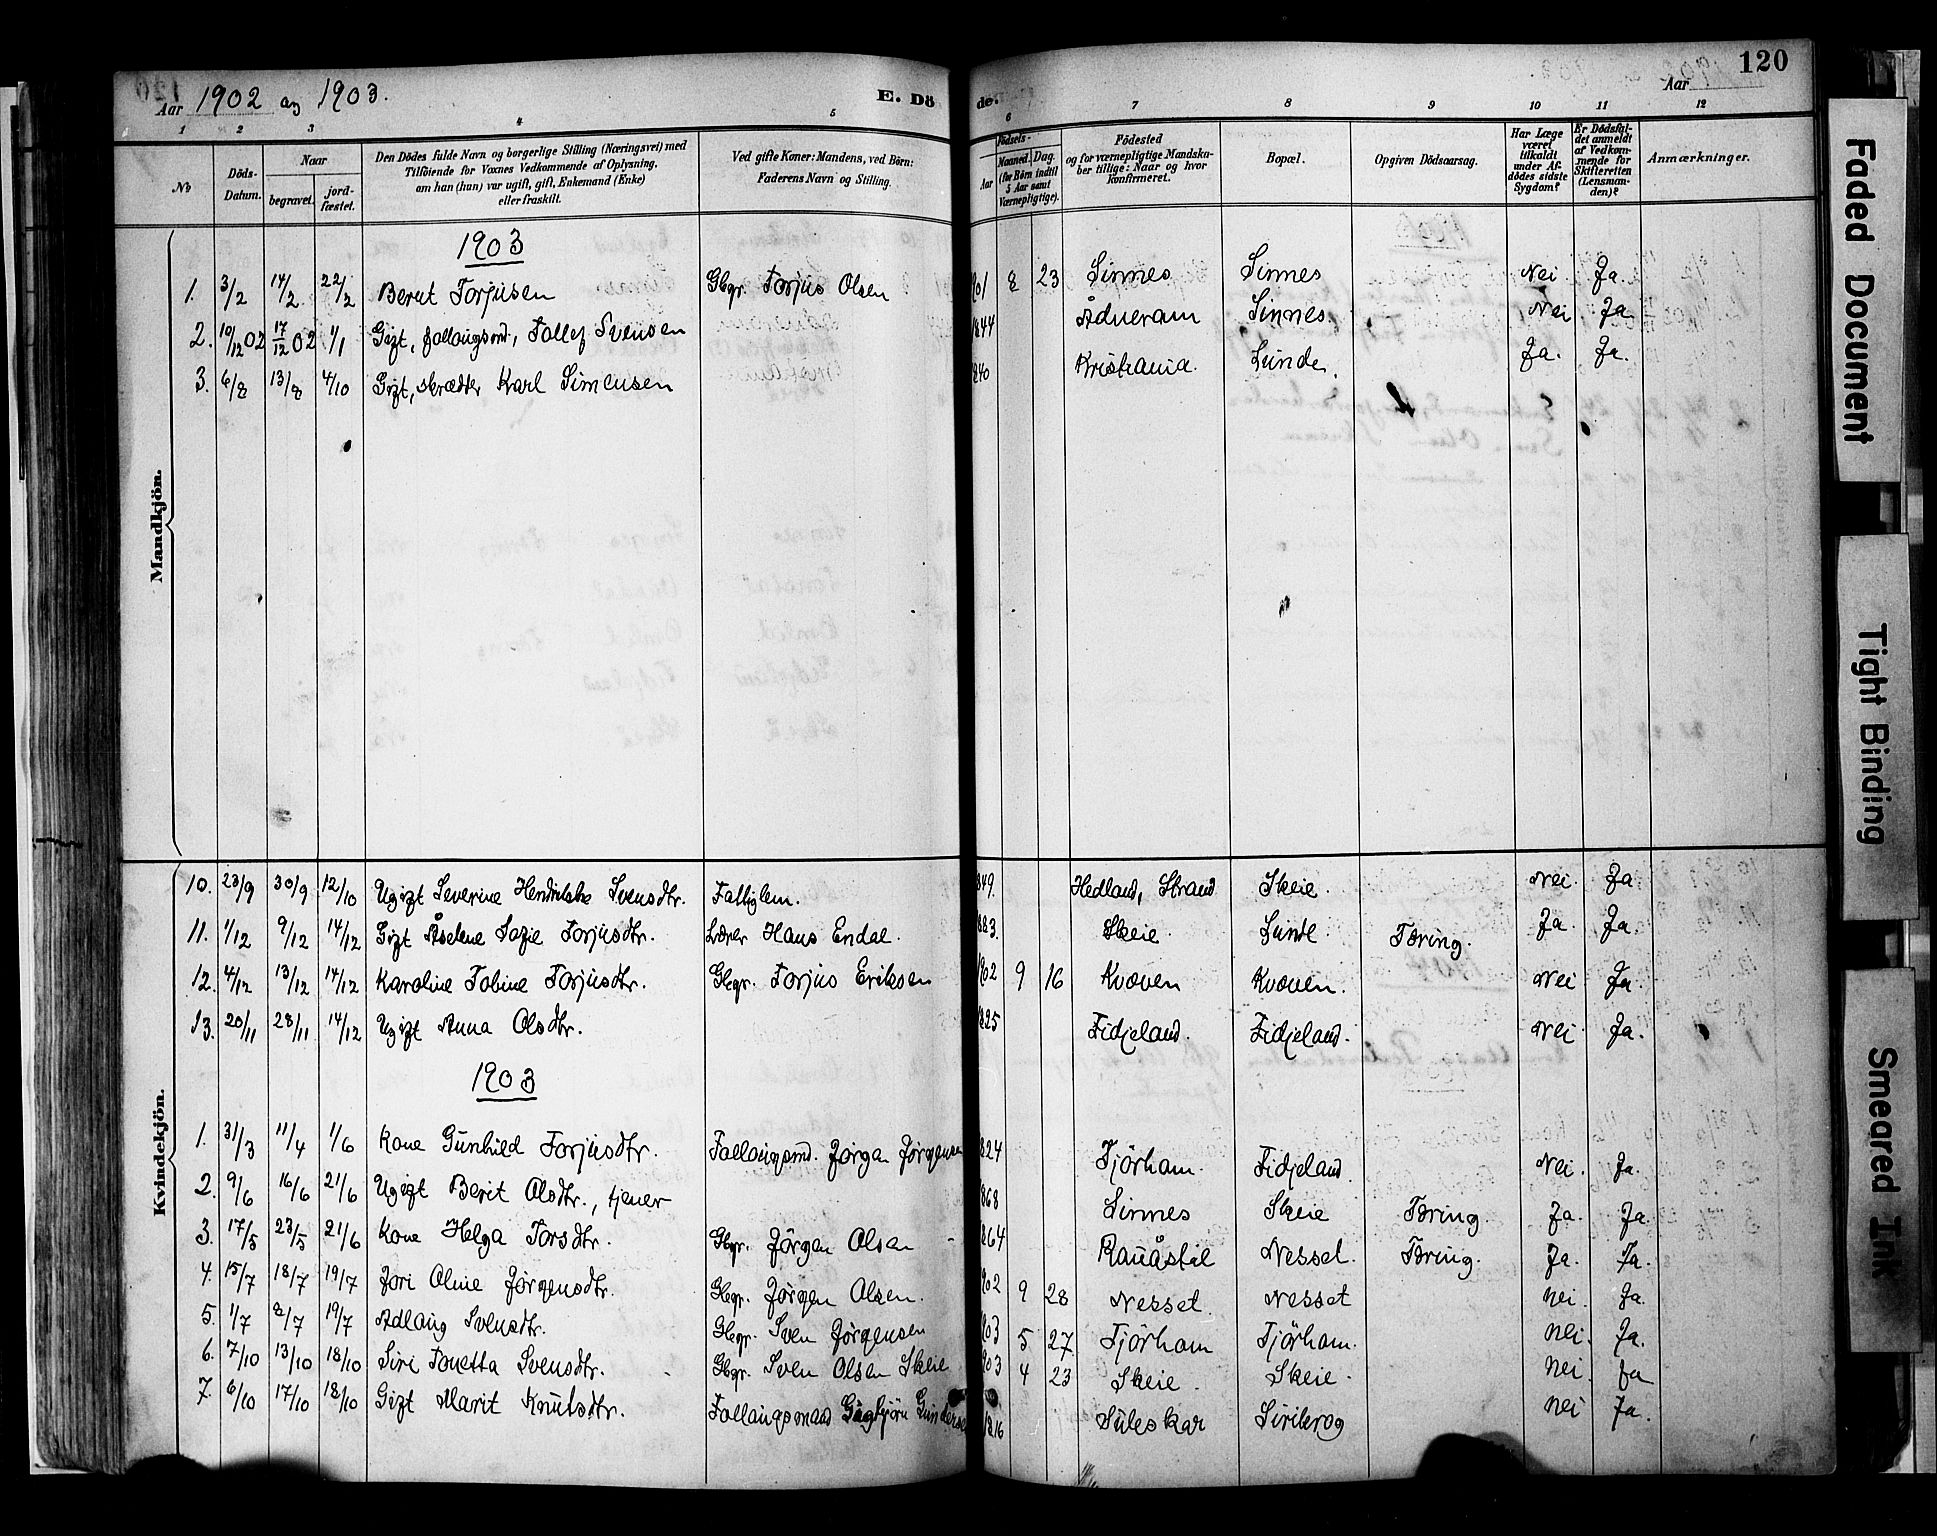 Aar 1902 og 1903.
E. Dö
de.
Aar
120
1 2 3 4 5 6 7 8 9 10 11 12
No
Döds-Datum.
Naar
begravet.
jord-fæstet.
Den Dödes fulde Navn og borgerlige Stilling (Næringsvei) med
Tilföiende for Voxnes Vedkommende af Oplysning,
om han (hun) var ugift, gift, Enkemand (Enke)
eller fraskilt.
Ved gifte Koner: Mandens, ved Börn:
Faderens Navn og Stilling.
Födsels-
Aar
Maaned.
Dag.
(for Börn indtil
5 Aar samt
Værnepligtige).
Födested
og for værnepligtige Mandskaber tillige: Naar og hvor
konfirmeret.
Bopæl.
Opgiven Dödsaarsag.
Har Læge
været
tilkaldt
under Afdödes sidste
Sygdom?
Er Dödsfaldet anmeldt
af Vedkommende for
Skifteretten
(Lensmanden)?
Anmærkninger.
Mandkjön.
1903
1. 3/2 14/2 22/2 Berut Torjusen Gbgr. Torjus Olsen 901 8 23 Sinnes Sinnes Nei Ja.
2. 10/12 02 17/12 02 1/1 Gift, follaugsmd., Tallef Svensen 1844 Ådneram Sinnes. Nei Ja
3. 6/8 13/8 4/10 Gift, skrædder Karl Simensen 840 Kristiania. Lunde. Ja. Ja.
Kvindekjön.
10. 23/9 30/9 12/10 Ugift Severine Hendrikke Svensdtr. Fattiglem. 849. Hedland, Strand Skeie. Nei. Ja
11. 1/12 9/12 14/12 Gift Åselene Sofie Torjusdtr. Lærer Hans Endal. 883. Skeie. Lunde. Tæring. Ja. Ja.
12. 4/12 13/12 14/12 Karoline Tobine Torjusdtr. Gbgr. Torjus Eriksen 1902 9 16 Kvæven Kvæven. Nei Ja.
13. 20/11 28/11 14/12 Ugift Anna Olsdtr. 825 Fidjeland. Fidjeland. Nei Ja.
1903
1. 31/3 11/4 1/6 Kone Gunhild Torjusdtr. Follaugsmd. Jørgen Jørgensen 824 Tjörham. Fidjeland. Nei. Ja.
2. 9/6 16/6 21/6 Ugift Berit Olsdtr., tjener 868 Sinnes Skeie Tæring. Ja. Ja.
3. 17/5 23/5 21/6 Kone Helga Torsdtr. Gbgr. Jørgen Olsen 864 Rauåstöl Nesset. Tæring. Ja. Ja.
4. 15/7 18/7 19/7 Jori Oline Jørgensdtr. Gbgr. Jørgen Olsen. 902 9 28 Nesset. Nesset Nei. Ja.
5. 1/7 8/7 19/7 Adlaug Svensdtr. Gbgr. Sven Jørgensen 903 5 27 Tjörham Tjörham. Nei. Ja.
6. 7/10 13/10 18/10 Siri Tonetta Svensdtr. Gbgr. Sven Olsen Skeie 903 4 23 Skeie. Skeie. Nei Ja
7. 6/10 17/10 18/10 Gift Marit Knutsdtr. Follaugsmand 1816 Suleskar Sirikrog Nei Ja.
Faded Document
Tight Binding
Smeared Ink